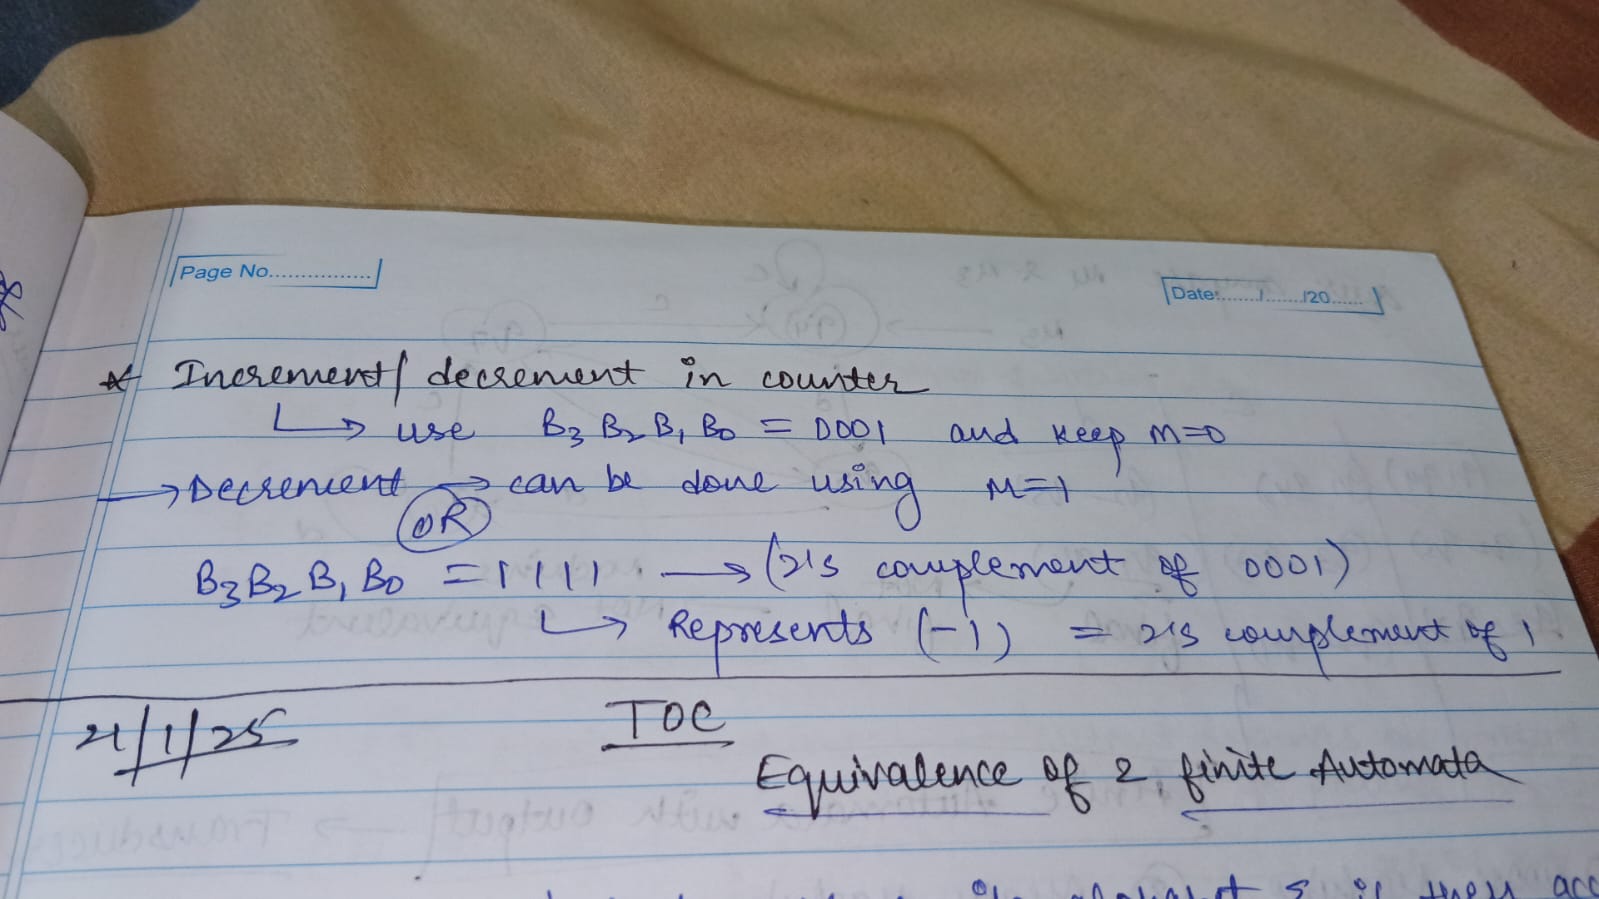 Page No.................
Date:......./......../20.......
* Increment/ decrement in counter
↳ use B₃ B₂ B₁ B₀ = 0001 and keep M=0
→ Decrement → can be done using M=1
OR
B₃ B₂ B₁ B₀ = 1111 → (2's complement of 0001)
↳ Represents (-1) = 2's complement of 1
21/1/25
TOC
Equivalence of 2 finite Automata
if they acc